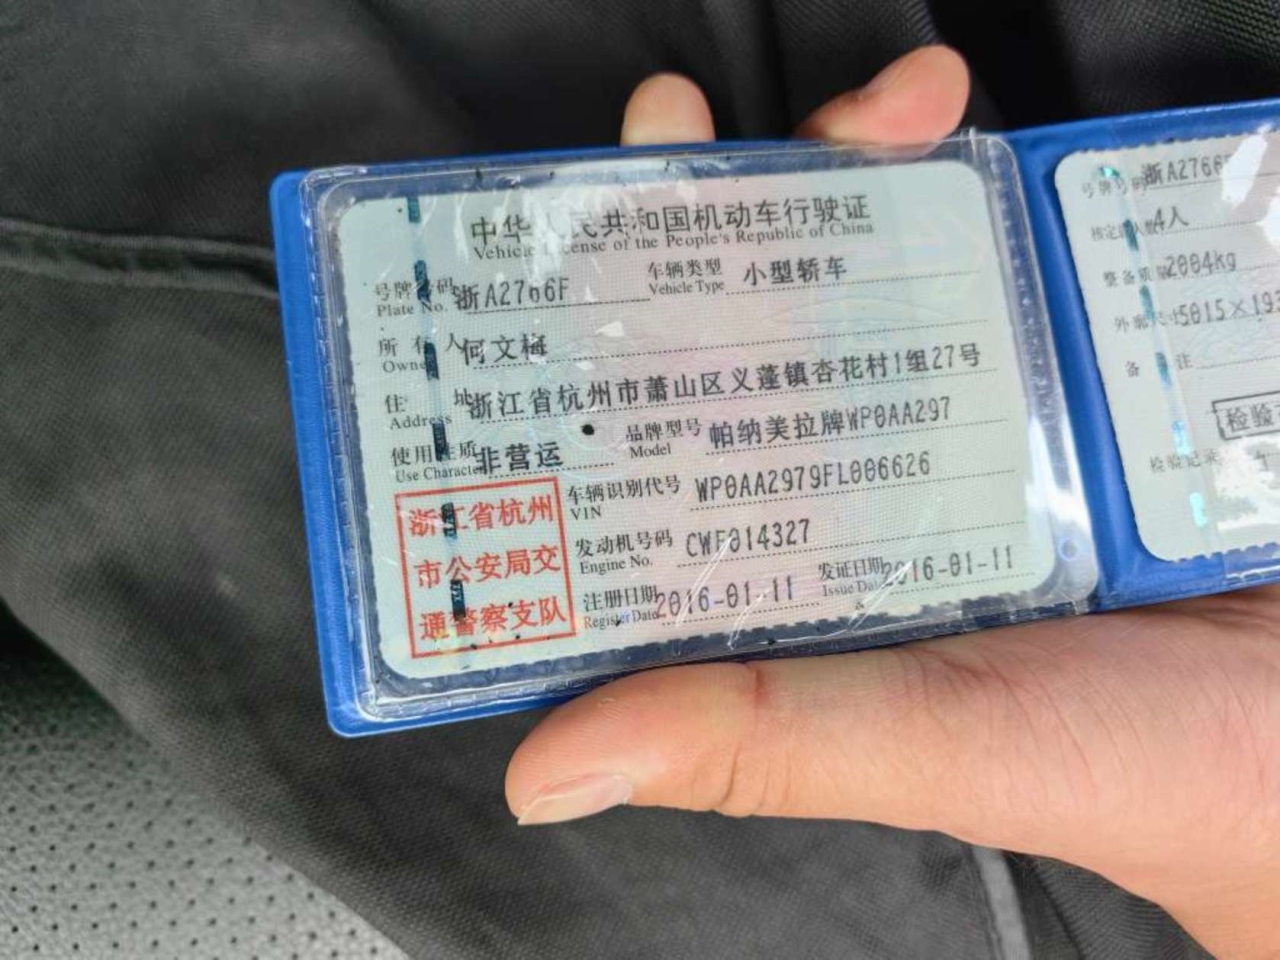 中华人民共和国机动车行驶证
Vehicle License of the People's Republic of China
号牌号码 浙A2766F 车辆类型 小型轿车
Plate No. Vehicle Type
所有人 何文梅
Owner
住址 浙江省杭州市萧山区义蓬镇杏花村1组27号
Address
使用性质 非营运 品牌型号 帕纳美拉牌WP0AA297
Use Character Model
浙江省杭州
市公安局交
通警察支队
车辆识别代号 WP0AA2979FL006626
VIN
发动机号码 CWF014327
Engine No.
注册日期 2016-01-11 发证日期 2016-01-11
Register Date Issue Date
号牌号码 浙A2766
核定载人数 4人
整备质量 2004kg
外廓尺寸 5015×19
备注
检验
检验记录